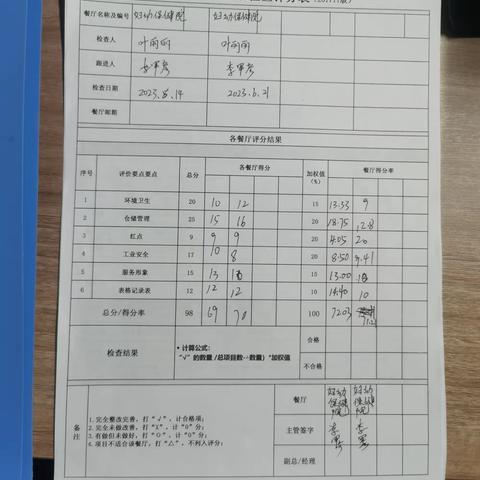 餐厅名称及编号 妇幼保健院 妇幼保健院
检查人 叶丽丽 叶丽丽
跟进人 李军彦 李军彦
检查日期 2023.8.14 2023.6.21
餐厅邮期
各餐厅评分结果
序号 评价要点要点 总分 各餐厅得分 加权值(%) 餐厅得分率
1 环境卫生 20 10 12 15 13.33 9
2 仓储管理 25 15 16 20 18.75 12.8
3 红点 9 9 9 20 4.05 20
4 工业安全 17 10 8 20 8.50 9.41
5 服务形象 15 13 15 13.00
6 表格记录表 12 12 12 10 14.40 10
总分/得分率 98 69 100 72.03
检查结果
• 计算公式:
"√"的数量/总项目数-·数量)*加权值
合格
不合格
备注
1.完全整改完善,打"√",计合格项;
2.完全未做改善,打"X",计"0"分;
3.有做但未做好,打"O",计"0"分;
4.项目不适合该餐厅,打"△",不列入评分;
餐厅 妇幼保健院 妇幼保健院
主管签字
副总/经理